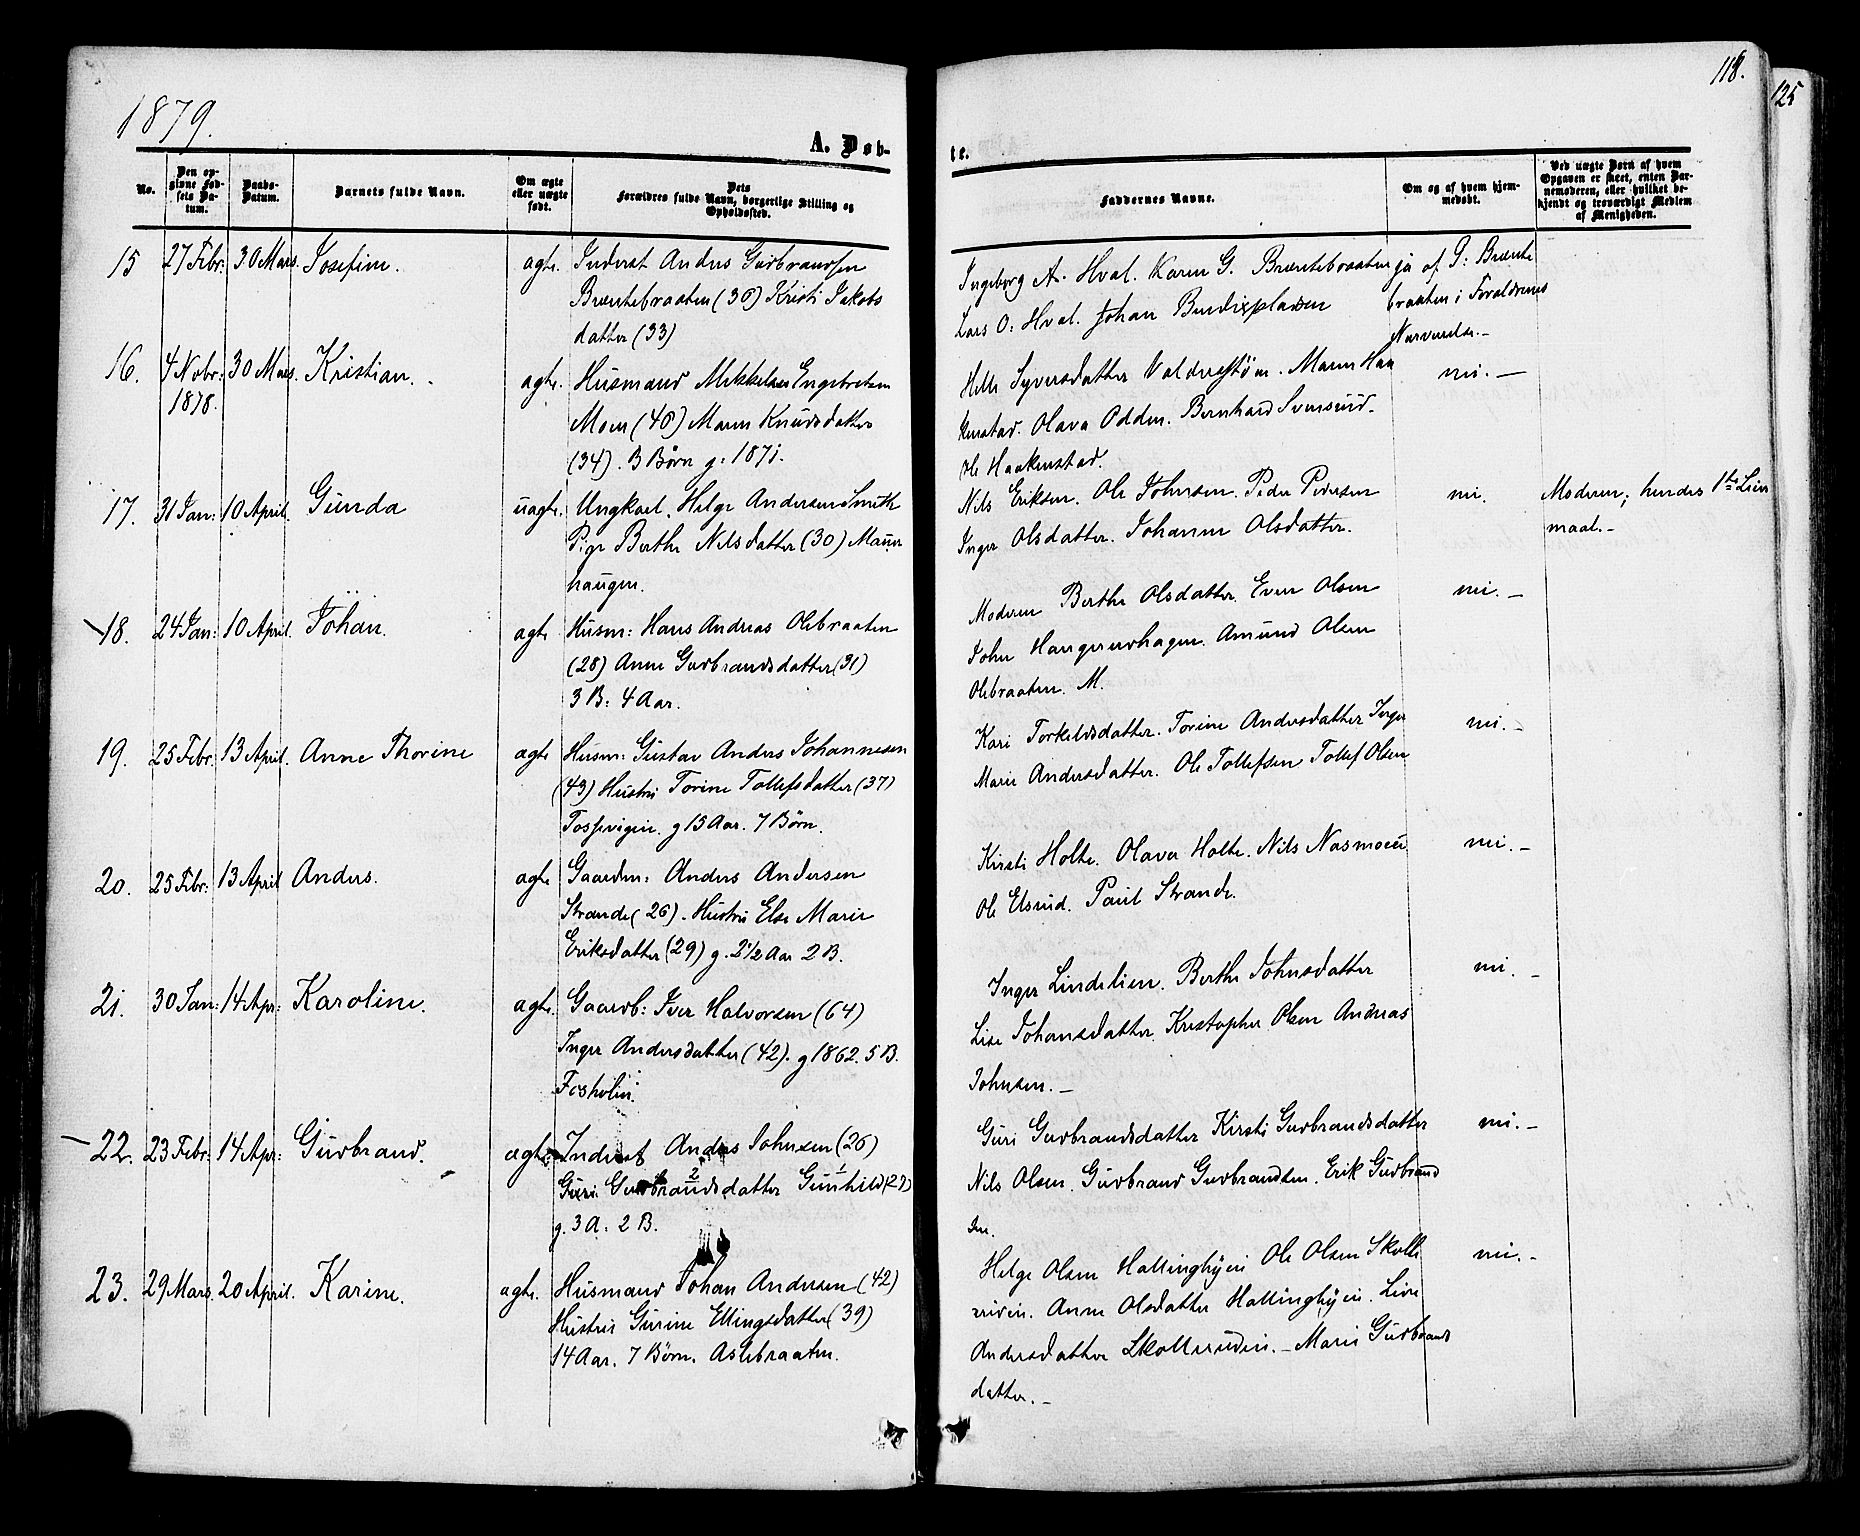 1879.
118.
125
A. Døb-
te.
No.
Den op-
givne Fød-
sels Da-
tum.
Daabs-
Datum.
Barnets fulde Navn.
Om ægte
eller uægte
født.
Dets
Forældres fulde Navn, borgerlige Stilling og
Opholdssted.
Faddernes Navne.
Om og af hvem hjem-
medøbt.
Ved uægte Børn af hvem
Opgaven er skeet, enten Bar-
nemoderen, eller hvilket be-
kjendt og troværdigt Medlem
af Menigheden.
15 27 Febr: 30 Mars. Josefine. ægte. Inderst Anders Gudbrandsen
Bræntebraaten (36) Kristi Jakobs
datter (33)
Ingeborg A. Hval. Karen G. Bræntebraaten
Lars O. Hval. Johan Bendixpladsen
ja af G: Brænte
braaten i Forældrenes
Nærværelse.-
16. 4 Nobr: 30 Mars. Kristian. ægte. Husmand Mikkelsen Engebretsen
1878.
Moen (40) Maren Knudsdatter
(34). 3 Børn g. 1871.
Helle Syversdatter Valdrestøen. Maren Haa
kenstad. Olava Odden. Bernhard Svensrud.
Ole Haakenstad.
nei.-
17. 31 Jan: 10 April. Gunda uægte. Ungkarl. Helge Andersen Smith
Pige Berthe Nilsdatter (30) Maur
haugen.
Nils Eriksen. Ole Johnsen. Peder Pedersen
Inger Olsdatter. Johanne Olsdatter.
nei.
Moderen; hendes 1ste Leier
maal.-
18. 24 Jan: 10 April. Johan. ægte Husm: Hans Andreas Olebraaten
(28) Anne Gudbrandsdatter (31)
3 B: 4 Aar.
Moderen Berthe Olsdatter. Even Olsen
John Haugerudhagen. Amund Olsen
Olebraaten. M.
nei.-
19. 25 Febr. 13 April. Anne Thorine ægte Husm: Gustav Anders Johannesen
(43) Hustru Torine Tollefsdatter (37)
Fossevigen. g 15 Aar. 7 Børn.
Kari Torkeldsdatter. Torine Andersdatter Inger
Marie Andersdatter. Ole Tollefsen Tollef Olsen
nei.-
20. 25 Febr: 13 April Anders. ægte Gaardm: Anders Andersen
Strande (26). Hustru Else Marie
Eriksdatter (29) g. 2 1/2 Aar 2 B.
Kirsti Holte. Olava Holte. Nils Nasmoen
Ole Elsrud. Paul Strande.
nei.-
21. 30 Jan: 14 Apr: Karoline. ægte. Gaardb: Iver Halvorsen (64)
Inger Andersdatter (42). g 1862. 5 B.
Fosholm.
Inger Lindelien. Berthe Johnsdatter
Lise Johansdatter. Kristopher Olsen Andreas
Johnsen.-
nei.-
22. 23 Febr: 14 Apr: Gudbrand. ægte Inderst Anders Johnsen (26)
Guri Gudbrandsdatter Gunhild (27)
g. 3 A: 2 B.
Guri Gudbrandsdatter Kirsti Gudbrandsdatter
Nils Olsen. Gudbrand Gudbrandsen. Erik Gudbrand
sen.
nei.-
23. 29 Mars. 20 April. Karine. ægte. Husmand Johan Andersen (42)
Hustru Gurine Ellingsdatter (39)
14 Aar. 7 Børn. Aslebraaten.
Helge Olsen Hallinghyen Ole Olsen Skolle
rudei. Anne Olsdatter Hallinghyen. Live
Andersdatter Skollerudei.- Marie Gudbrands
datter.-
nei.-